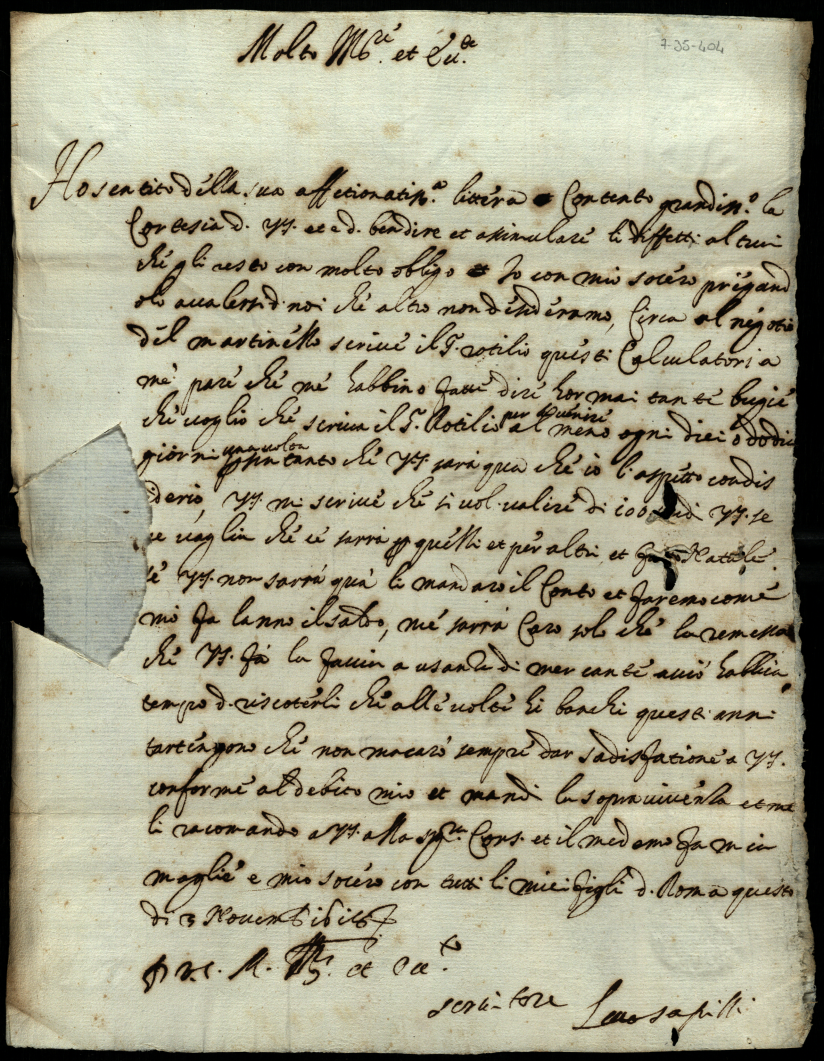 Molto Ill.re et Ecc.te
7-35-404
Ho sentito della sua affettionatis.a littera Contento grandis.o la
Cortesia d. VS. et e d. bendire et asimulare li diffetti altrui
che gli resto con molto obligo Io con mio socero pregand
olo avalersi d. noi che altro non desideramo, Circa al negotio
del martinello scrive il S. rotilio questi Calculatori a
me pare che me habbino fatte dire hormai tante bugie
che voglio che scriva il S. Rotilio per l'avenire al meno ogni dieci o dodici
giorni una volta per in tanto che VS. sara qua che io l'aspetto con dis
derio, VS. mi scrive che si vol valire di 100 scudi VS. se
ne vaglia che ce sarra p quelli et per altri, et Natale
se VS. non sarrà quà li mandaro il Conto et faremo come
mo fa lanno il saldo, me sarrà Caro solo che la remessa
che VS. fà la faccia a usanza di mercante acciò habbia
tempo d. riscoterli che alle volte li banchi questi anni
tartengono che non macarò sempre dar sadisfatione a VS.
conforme al debito mio et mandi la sopraviventa et me
li racomando a VS. alla Sig.ra Cons. et il medemo fa mia
moglie e mio socero con tutti li miei figli d. Roma questo
di 3 Novemb 1618
D. V.S. M. Ill. et Ecc.
servitore